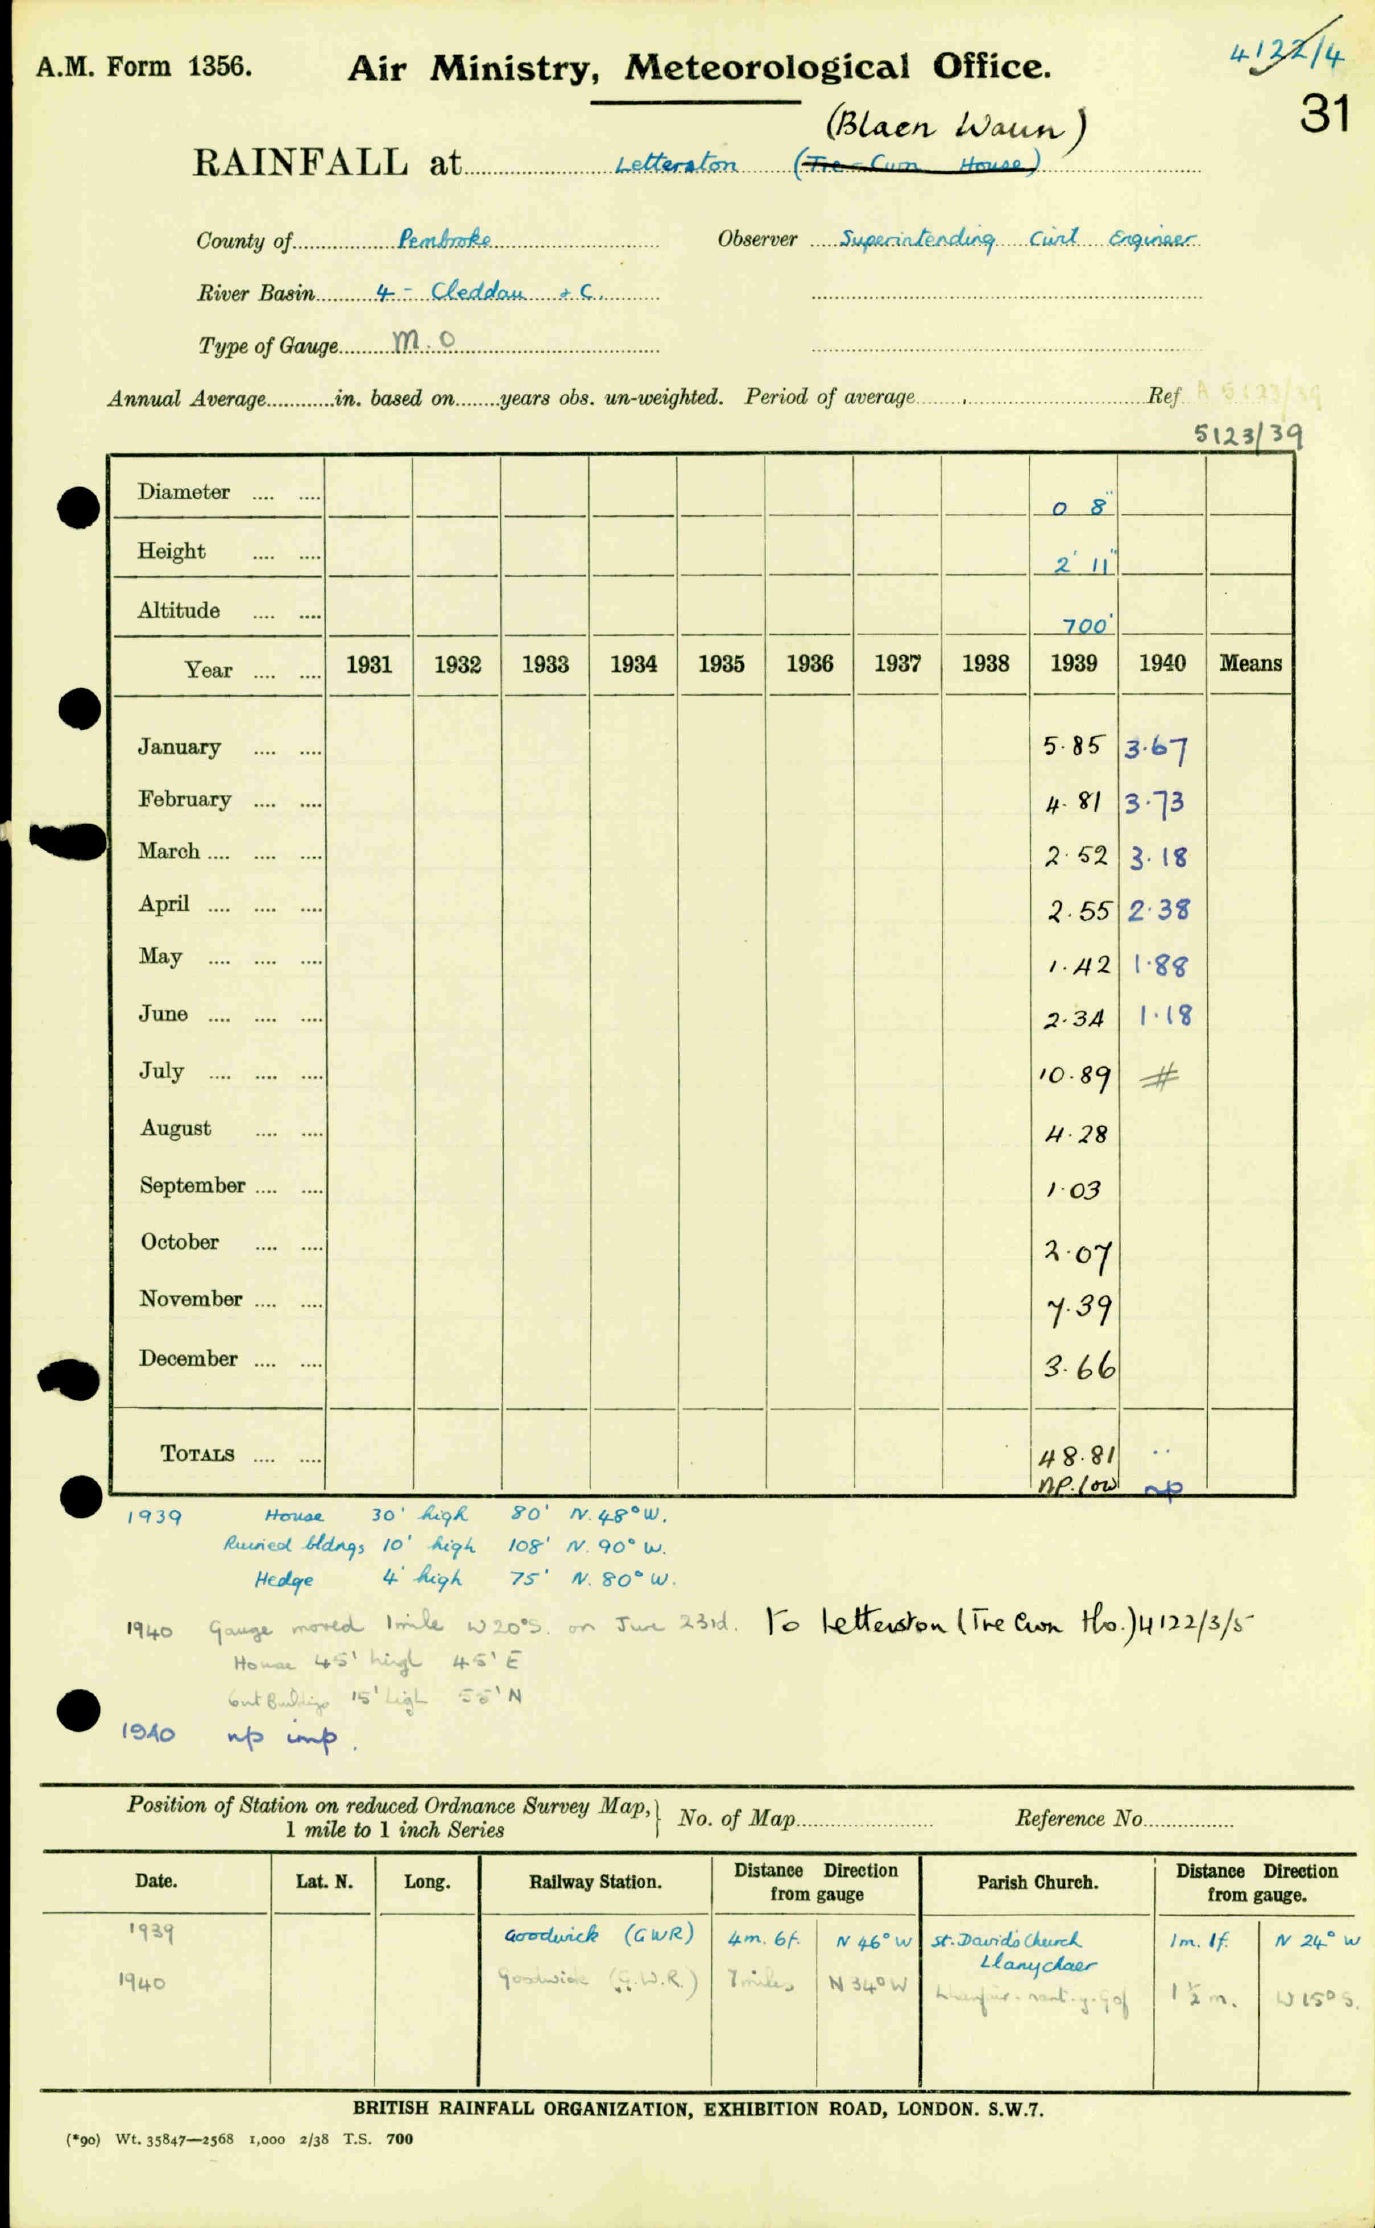 4122/4
A.M. Form 1356. Air Ministry, Meteorological Office.
31
(Blaen Waun)
RAINFALL at Letterston (Tre-Cwn House)
County of Pembroke Observer Superintending Civil Engineer
River Basin 4 - Cleddau + C.
Type of Gauge M.O
Annual Average in. based on years obs. un-weighted. Period of average Ref A 5123/39
5123/39
Diameter 0 8"
Height 2' 11"
Altitude 700'
Year 1931 1932 1933 1934 1935 1936 1937 1938 1939 1940 Means
January 5.85 3.67
February 4.81 3.73
March 2.52 3.18
April 2.55 2.38
May 1.42 1.88
June 2.34 1.18
July 10.89 #
August 4.28
September 1.03
October 2.07
November 7.39
December 3.66
TOTALS 48.81 ..
np. low np
1939 House 30' high 80' N. 48° W.
Ruined bldngs 10' high 108' N. 90° W.
Hedge 4' high 75' N. 80° W.
1940 Gauge moved 1 mile W 20° S. on June 23rd. To Letterston (Tre Cwn Ho.) 4122/3/5
House 45' high 45' E
Out Buildings 15' high 55' N
1940 np imp.
Position of Station on reduced Ordnance Survey Map, } No. of Map Reference No
1 mile to 1 inch Series
Date. Lat. N. Long. Railway Station. Distance Direction from gauge Parish Church. Distance Direction from gauge.
1939 Goodwick (GWR) 4m. 6f. N 46° W St. David's Church 1m. 1f. N 24° W
Llanychaer
1940 Goodwick (G.W.R.) 7 miles N 34° W nant-y-Gof 1 1/2 m. W 15° S.
BRITISH RAINFALL ORGANIZATION, EXHIBITION ROAD, LONDON. S.W.7.
(*90) Wt. 35847—2568 1,000 2/38 T.S. 700